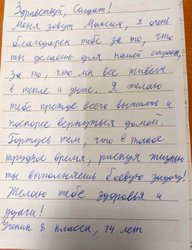 Здравствуй, Солдат!
Меня зовут Максим, я очень
благодарен тебе за то, что
ты делаешь для нашей страны,
За то, что мы все живём
в тепле и доме. Я желаю
тебе прежде всего выжить и
поскорее вернуться домой.
Горжусь тем что в такое
трудное время, рискуя жизнью
ты выполняешь боевую задачу!
Желаю тебе здоровья и
удачи!
Ученик 8 класса, 14 лет